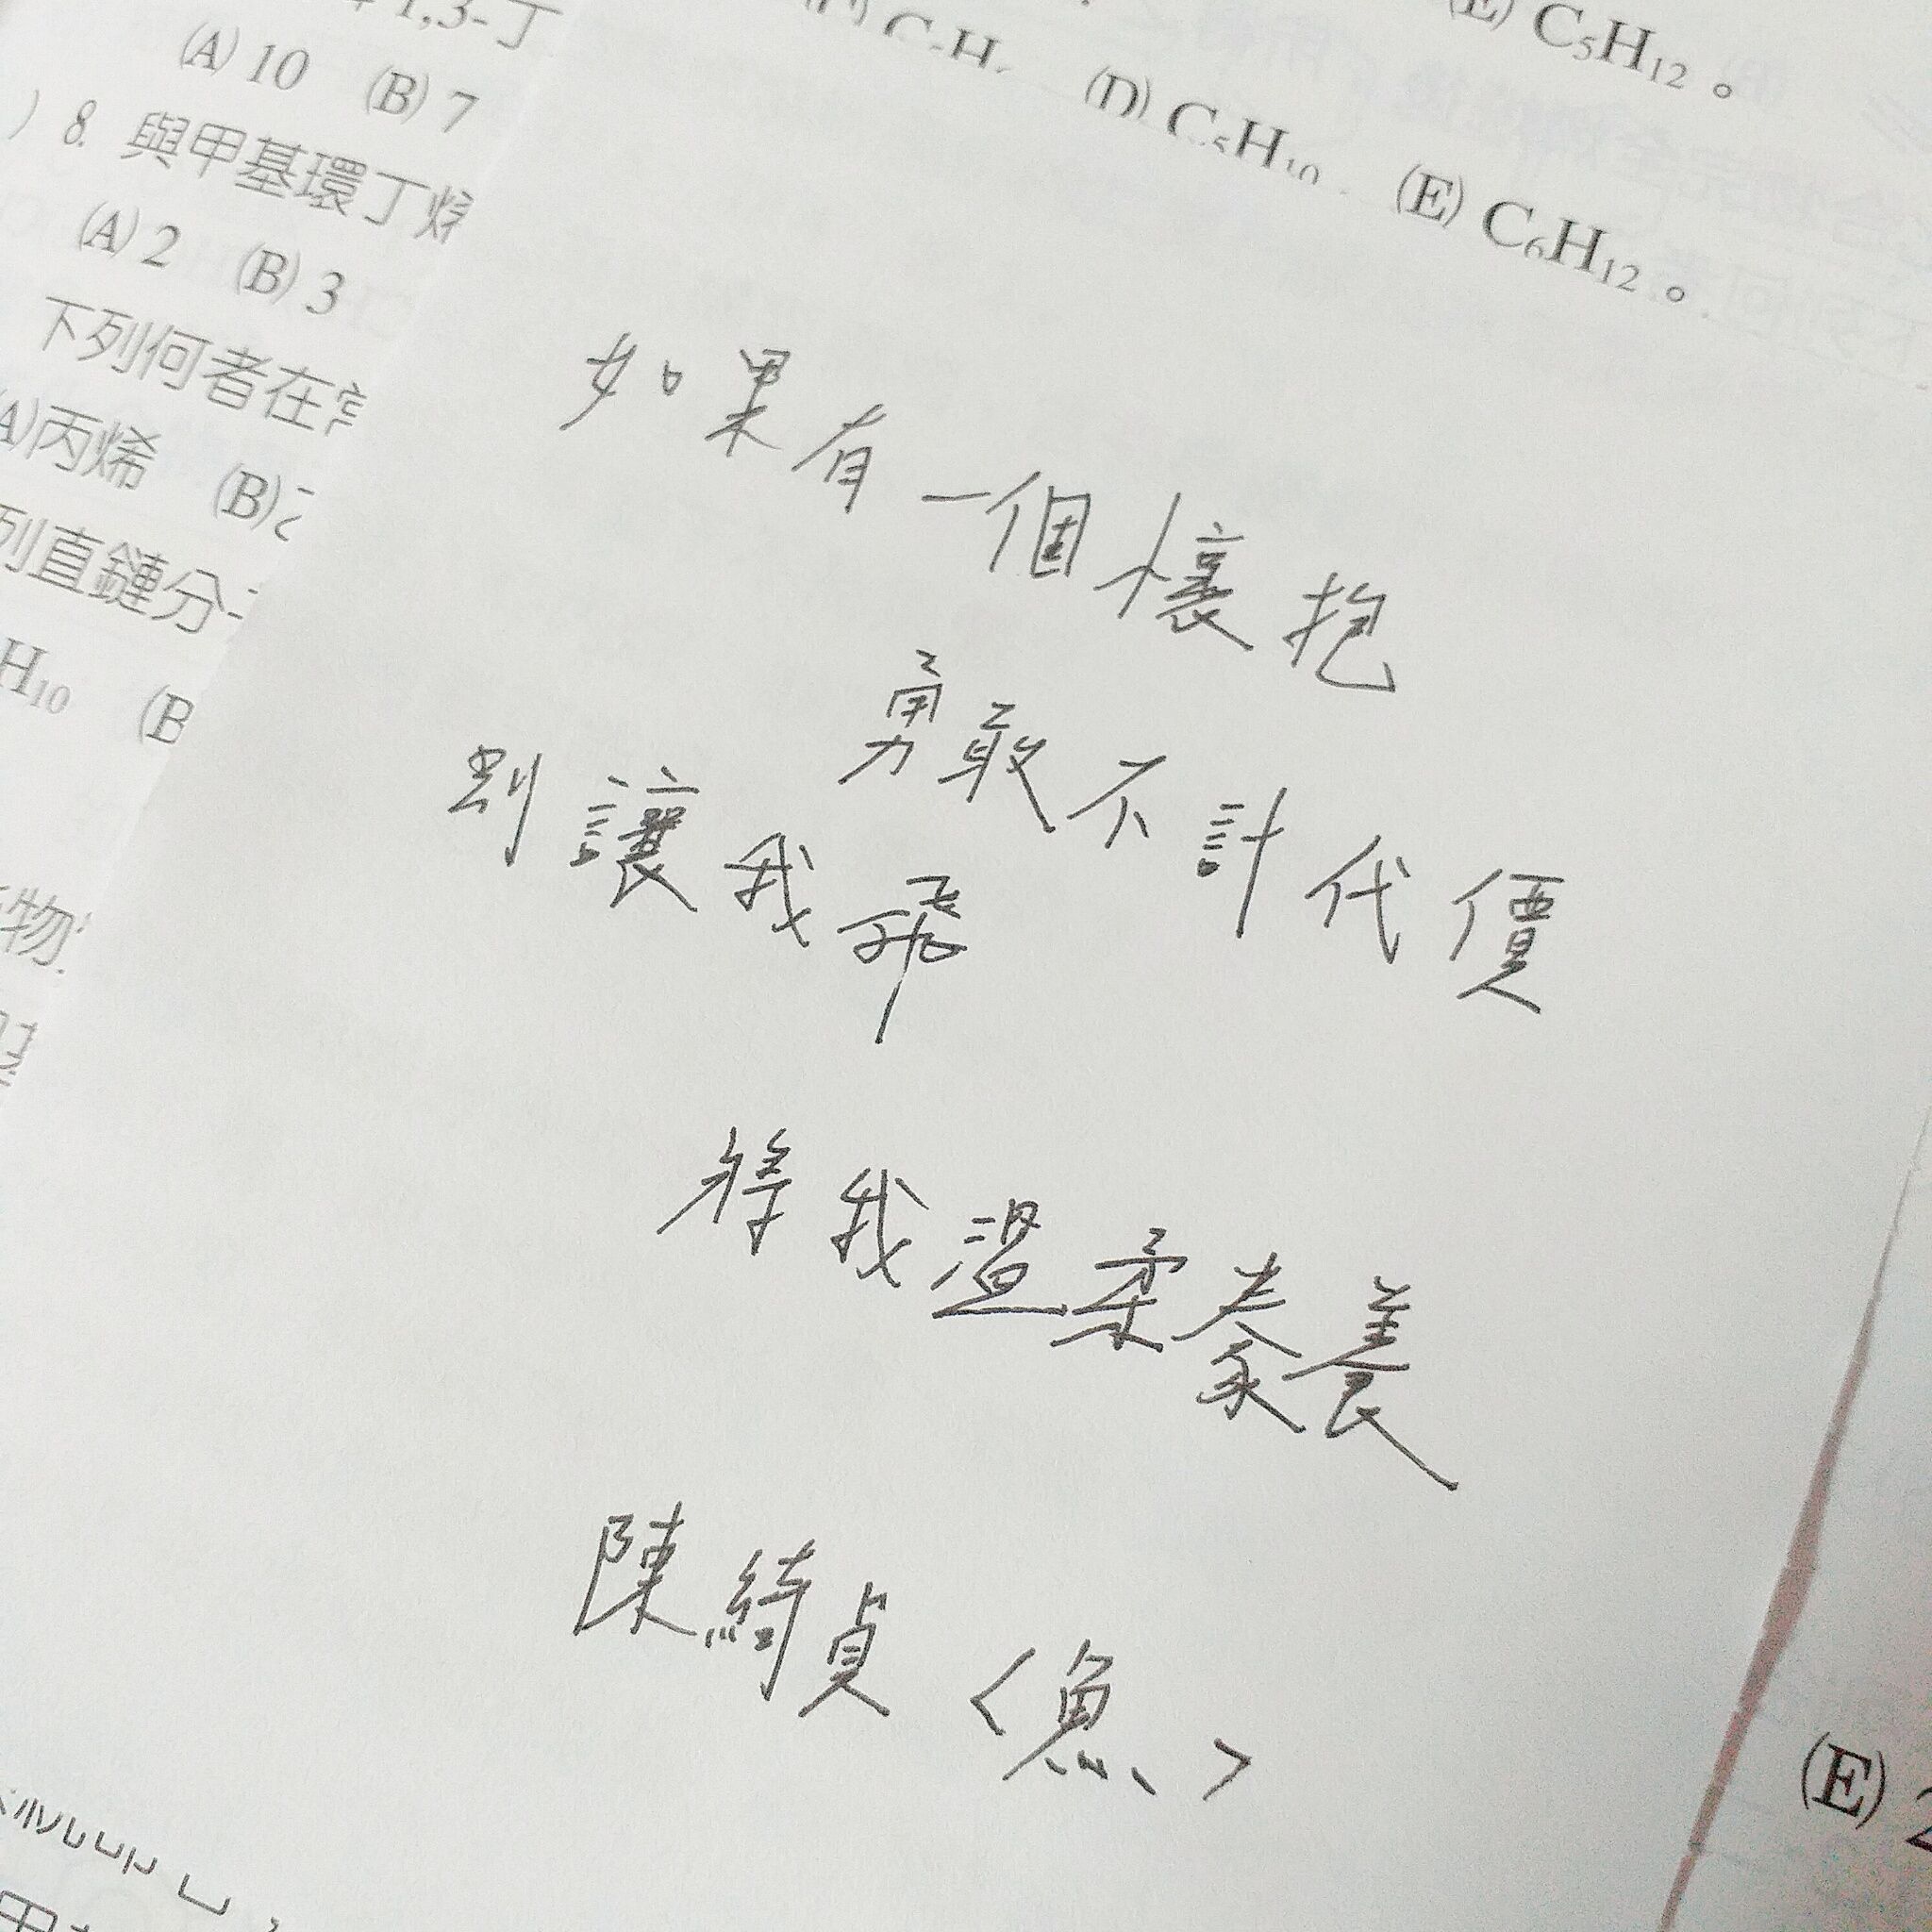 1,3-丁
(A) 10 (B) 7
) 8. 與甲基環丁烯
(A) 2 (B) 3
下列何者在常
(A)丙烯 (B)
列直鏈分子
H10 (B
物
(E) C5H12。
(D) C5H10 (E) C6H12。
如果有一個懷抱
勇敢不計代價
別讓我飛
將我溫柔豢養
陳綺貞〈魚〉
(E) 2